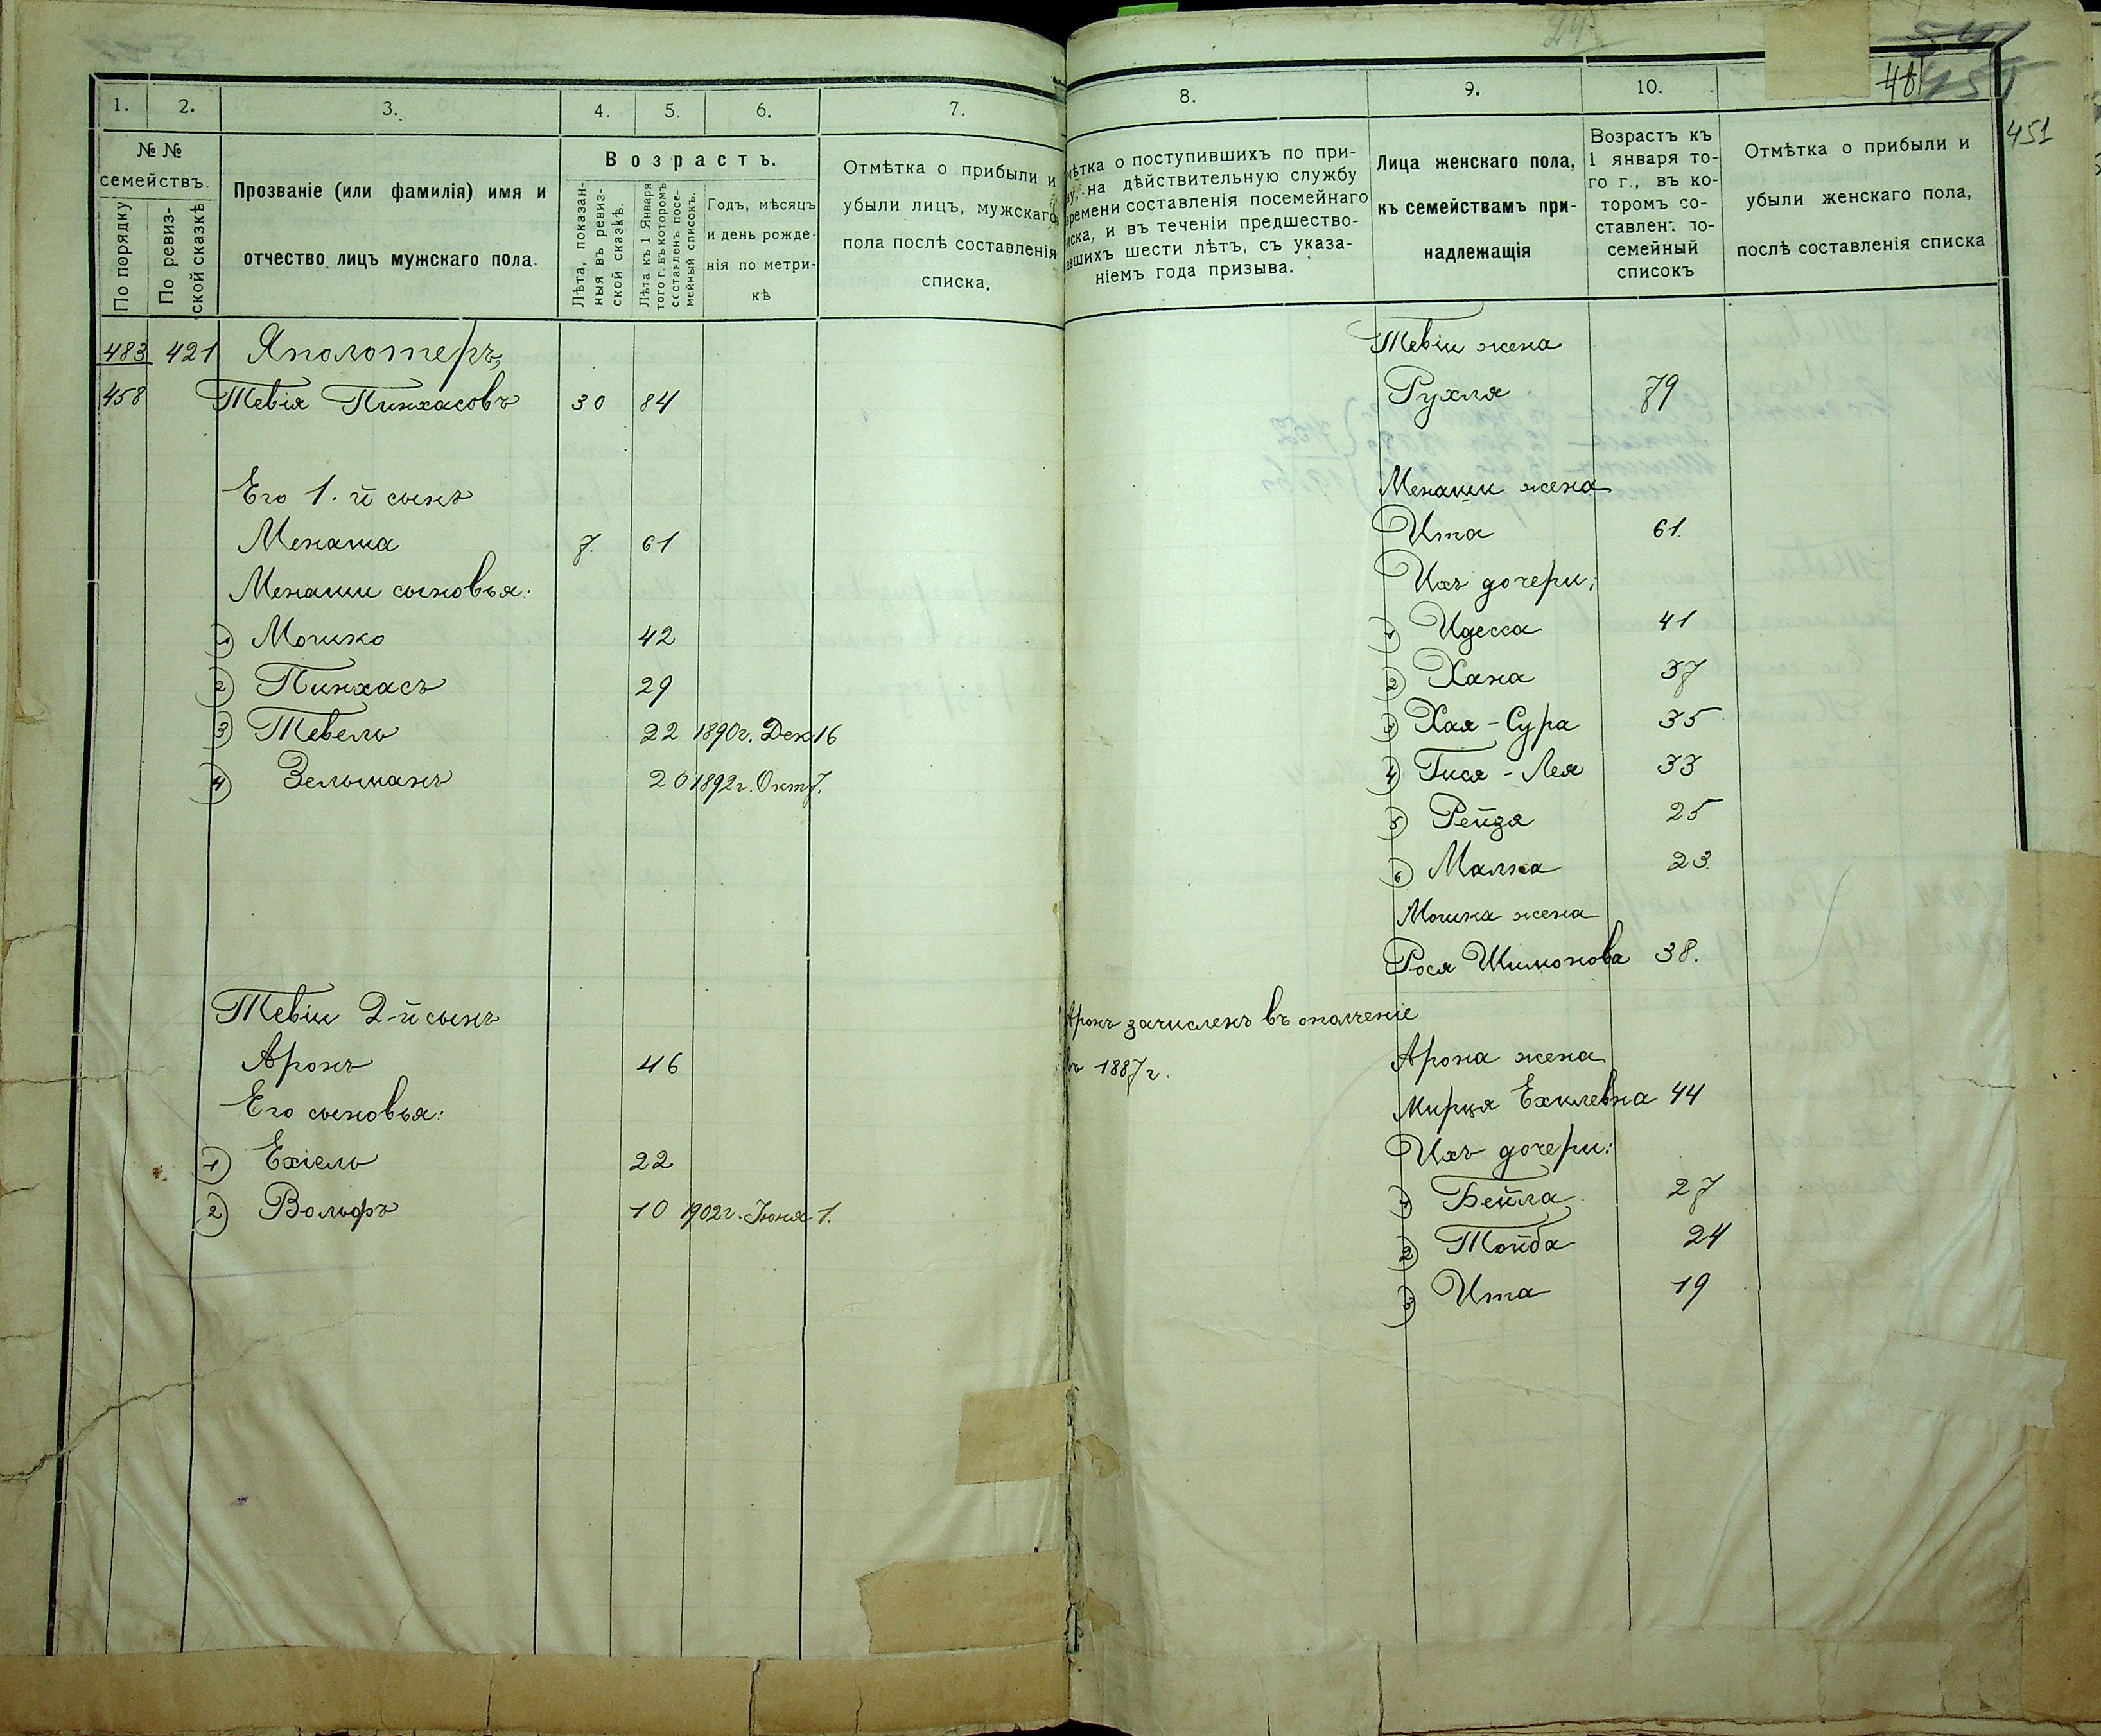 1.
2.
3.
4.
5.
6.
7.
№ №
семействъ.
По порядку
По ревиз-
ской сказкѣ
Прозваніе (или фамилія) имя и
отчество лицъ мужскаго пола.
Возрастъ.
Лѣта, показан-
ныя въ ревиз-
ской сказкѣ.
Лѣта къ 1 Января
того г. въ которомъ
составленъ посе-
мейный списокъ.
Годъ, мѣсяцъ
и день рожде-
нія по метри-
кѣ
Отмѣтка о прибыли и
убыли лицъ, мужскаго
пола послѣ составленія
списка.
483 421 Яполотеръ,
458 Тевія Пинхасовъ 30 84
Его 1.й сынъ
Менаша 7. 61
Менаши сыновья:
1) Мошко 42
2) Пинхасъ 29
3) Тевель 22 1890г. Дек 16
4) Зельманъ 20 1892г. Окт 7.
Тевіи 2-й сынъ
Аронъ 46
Его сыновья:
1) Ехіель 22
2) Вольфъ 10 1902г. Іюня 1.
24
451
481
8.
9.
10.
мѣтка о поступившихъ по при-
ву, на дѣйствительную службу
времени составленія посемейнаго
иска, и въ теченіи предшество-
авшихъ шести лѣтъ, съ указа-
ніемъ года призыва.
Лица женскаго пола,
къ семействамъ при-
надлежащія
Возрастъ къ
1 января то-
го г., въ ко-
торомъ со-
ставленъ по-
семейный
списокъ
Отмѣтка о прибыли и
убыли женскаго пола,
послѣ составленія списка
Тевіи жена
Рухля 79
Менаши жена
Ита 61.
Ихъ дочери:
1) Идесса 41
2) Хана 37
3) Хая-Сура 35
4) Гися-Лея 33
5) Рейзя 25
6) Малка 23.
Мошка жена
Рося Шимонова 38.
Аронъ зачисленъ въ ополченіе
въ 1887г.
Арона жена
Мирця Ехилевна 44
Ихъ дочери:
1) Бейла 27
2) Тойба 24
3) Ита 19